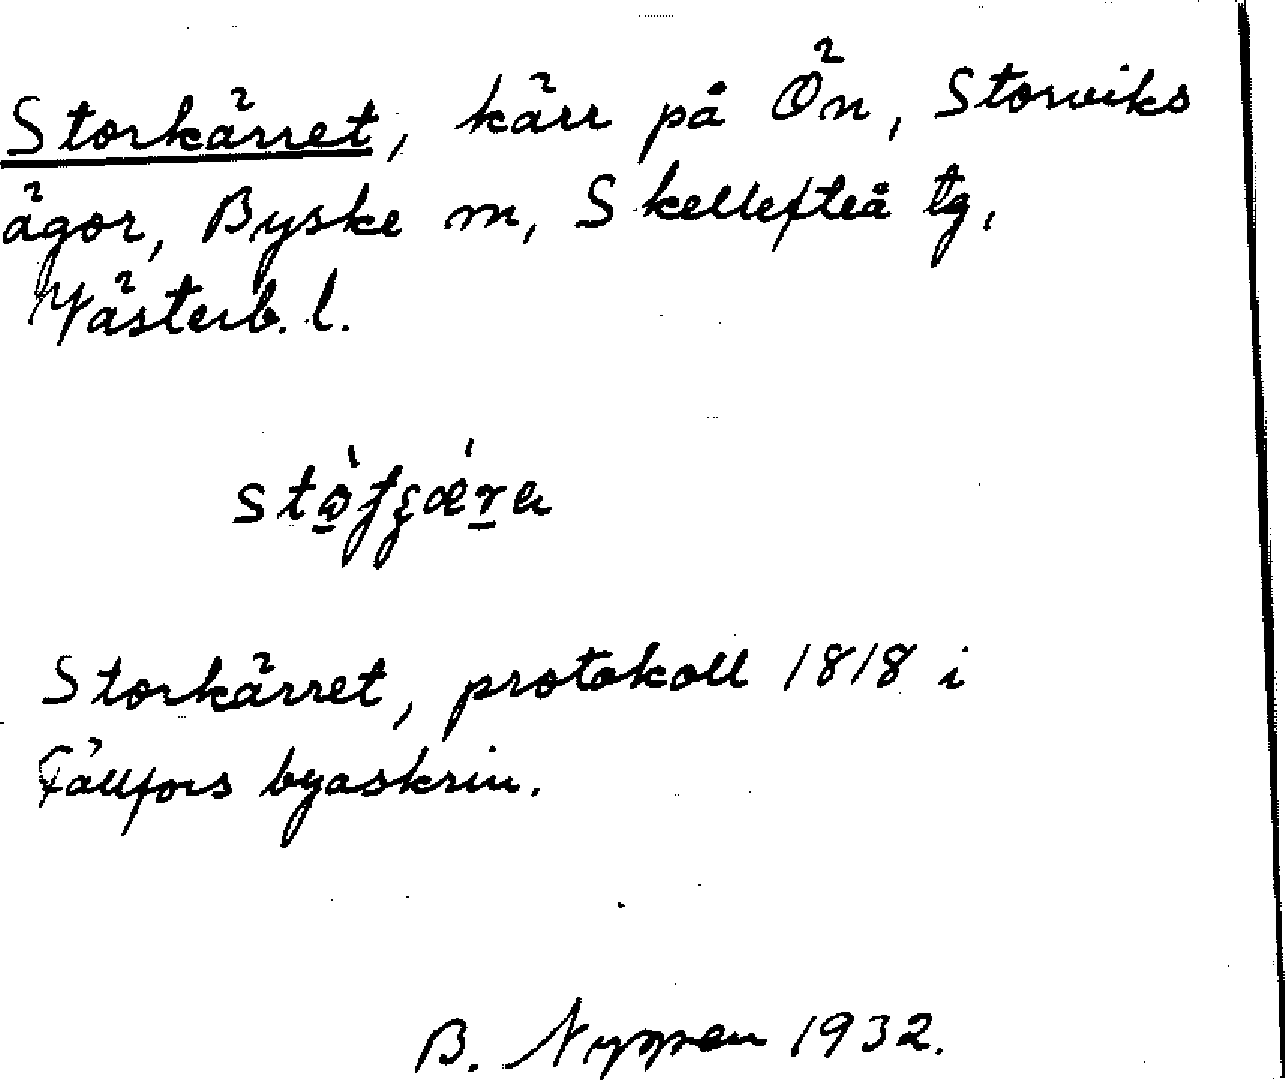 Storkärret, kärr på Ön, Storviks
ägor, Byske m, Skellefteå tg,
Västerb. l.
Storkärret, protokoll 1818 i
Fällfors byaskrin.
B. 1932.